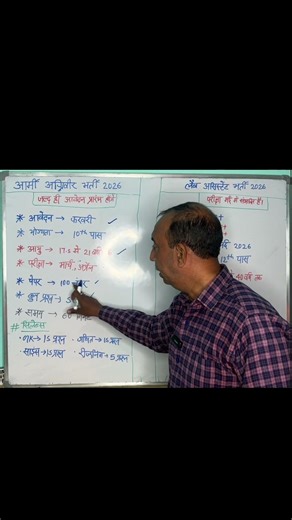 आर्मी अग्निवीर भर्ती 2026
जल्द ही आवेदन प्रारंभ होंगे
* आवेदन → फरवरी ✓
* योग्यता → 10th पास
* आयु → 17.5 से 21 वर्ष
* परीक्षा → मार्च, अप्रैल
* पेपर → 100 नंबर ✓
* कुल प्रश्न → 5
* समय → 60
# सिलेबस
• GK → 15 प्रश्न • गणित → 15 प्रश्न
• साइंस → 15 प्रश्न • रीजनिंग → 5 प्रश्न
लैब असिस्टेंट भर्ती 2026
परीक्षा मई में संभावित है।
2026
12th पास
40 वर्ष तक